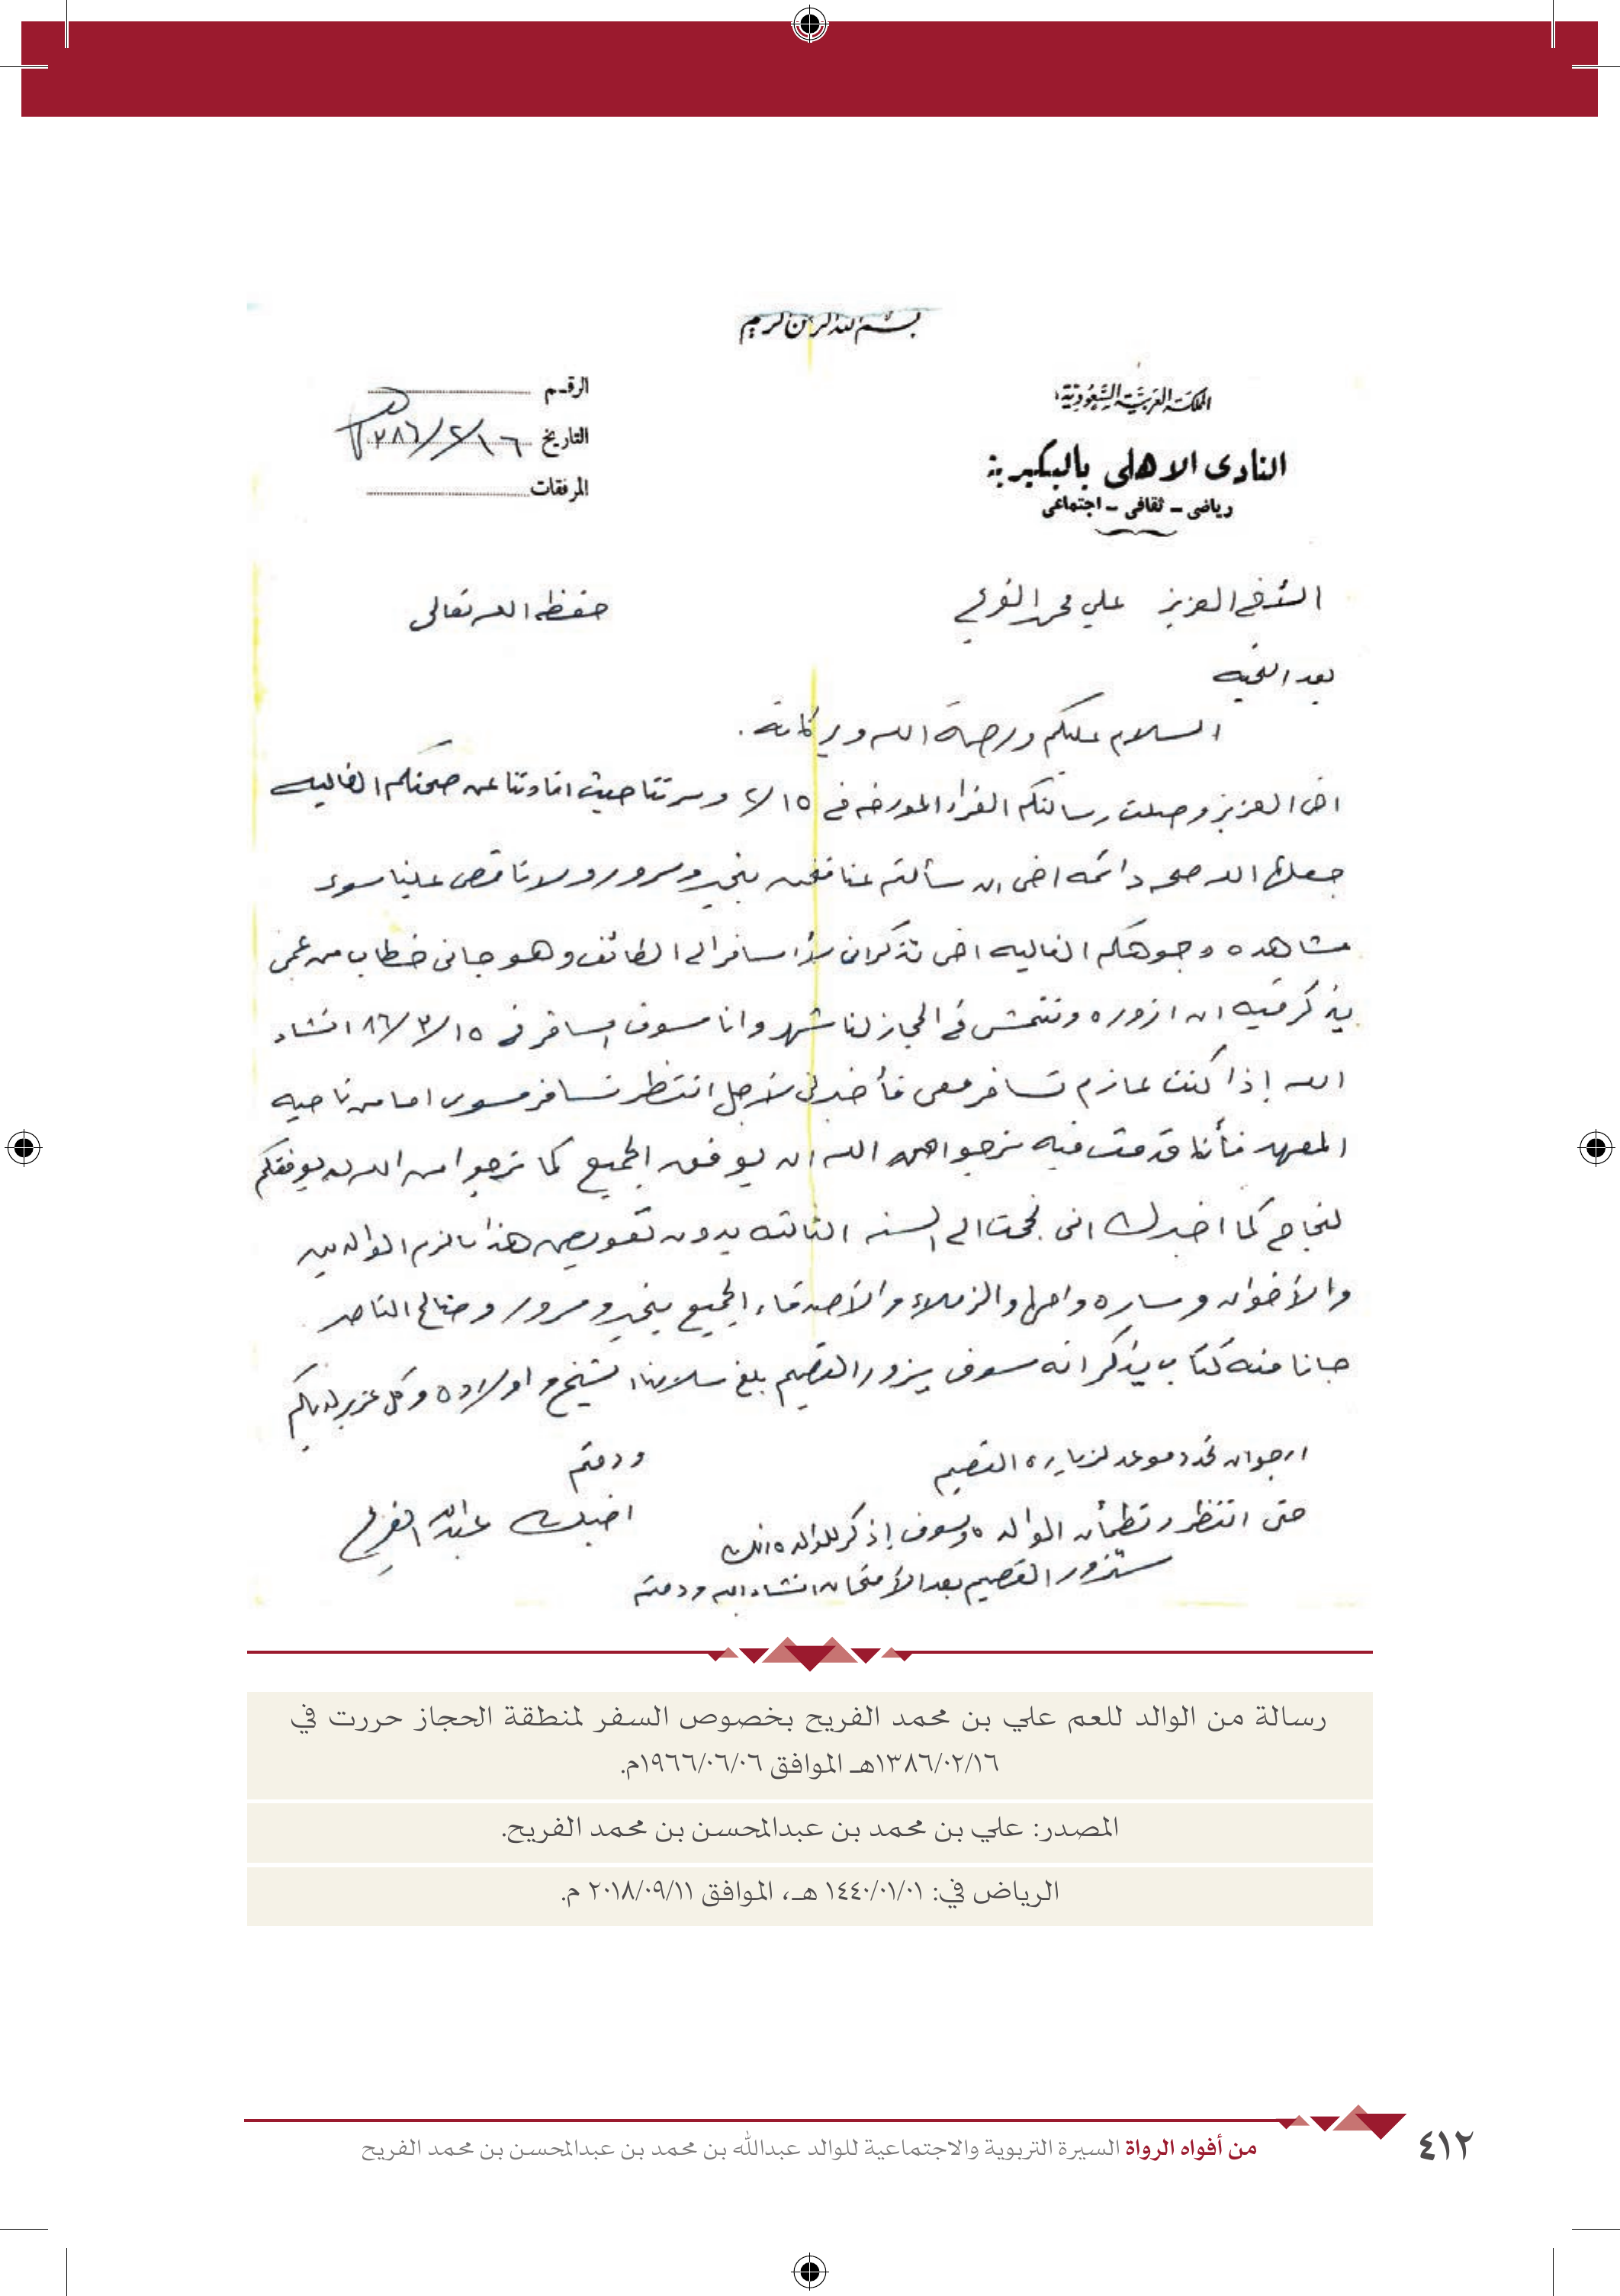 بسم الله الرحمن الرحيم
المملكة العربية السعودية
النادى الاهلى بالبكيرية
رياضى – ثقافى – اجتماعى
الرقم
التاريخ ١٦/٢/١٣٨٦هـ
المرفقات
الأخ العزيز علي محمد الفريح حفظه الله تعالى
بعد التحيه
السلام عليكم ورحمة الله وبركاته .
اخى العزيز وصلت رسالتكم الغراء المورخه في ٢/١٥ وسرتنا حيث افادتنا عن صحتكم الغاليه
جعلها الله صحه دائمه اخى ان سألتم عنا فنحن بخير وسرور ولا ناقص علينا سوء
مشاهده وجوهكم الغاليه اخى تذكر انى مسافر الى الطائف وهو جانى خطاب من
يذكر فيه ان ازوره ونتمشى في الحجاز لنا شهر وانا سوف اسافر في ٨٦/٣/١٥ انشاء
الله إذا كنت عازم تسافر معى فأخبرنى لأجل انتظر نسافر سوى اما من ناحيه
المعهد فأنا قدمت فيه نرجوا من الله ان يوفق الجميع كما نرجوا من الله ان يوفقكم
لنجاح كما اخبرك انى نجحت الى السنه الثالثه بدون تعويض هذا مالزم الوالدين
والأخوان وساره وامها والزملاء والأصدقاء الجميع بخير وسرور وصالح الناصر
جانا منه كتاب يذكر انه سوف يزور القصيم بلغ سلامنا الشيخ واولاده وكل عزيز لديكم
ارجوا ان تحدد موعد لزياره القصيم
ودمتم
حتى انتظر وتطمأن الوالده وسوف إذكر للوالده انك
اخيك عبدالله الفريح
ستزور القصيم بعد الأمتحان انشاء الله ودمتم
رسالة من الوالد للعم علي بن محمد الفريح بخصوص السفر لمنطقة الحجاز حررت في
١٣٨٦/٠٢/١٦هـ الموافق ١٩٦٦/٠٦/٠٦م.
المصدر: علي بن محمد بن عبدالمحسن بن محمد الفريح.
الرياض في: ١٤٤٠/٠١/٠١ هـ، الموافق ٢٠١٨/٠٩/١١ م.
من أفواه الرواة السيرة التربوية والاجتماعية للوالد عبدالله بن محمد بن عبدالمحسن بن محمد الفريح
٤١٢